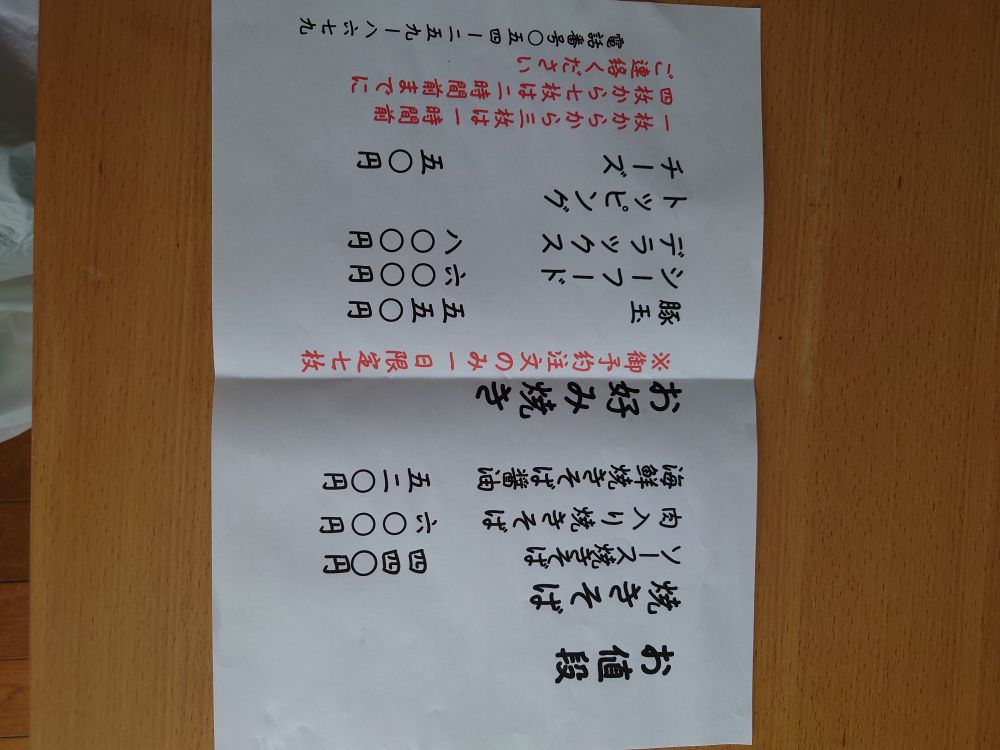 お値段
焼きそば
ソース焼きそば 四四〇円
肉入り焼きそば 六〇〇円
海鮮焼きそば醤油 五二〇円
お好み焼き
※御予約注文のみ一日限定七枚
豚玉 五五〇円
シーフード 六〇〇円
デラックス 八〇〇円
トッピング
チーズ 五〇円
一枚から三枚は一時間前
四枚から七枚は二時間前までに
ご連絡ください
電話番号〇五四ー二五九ー八六七九